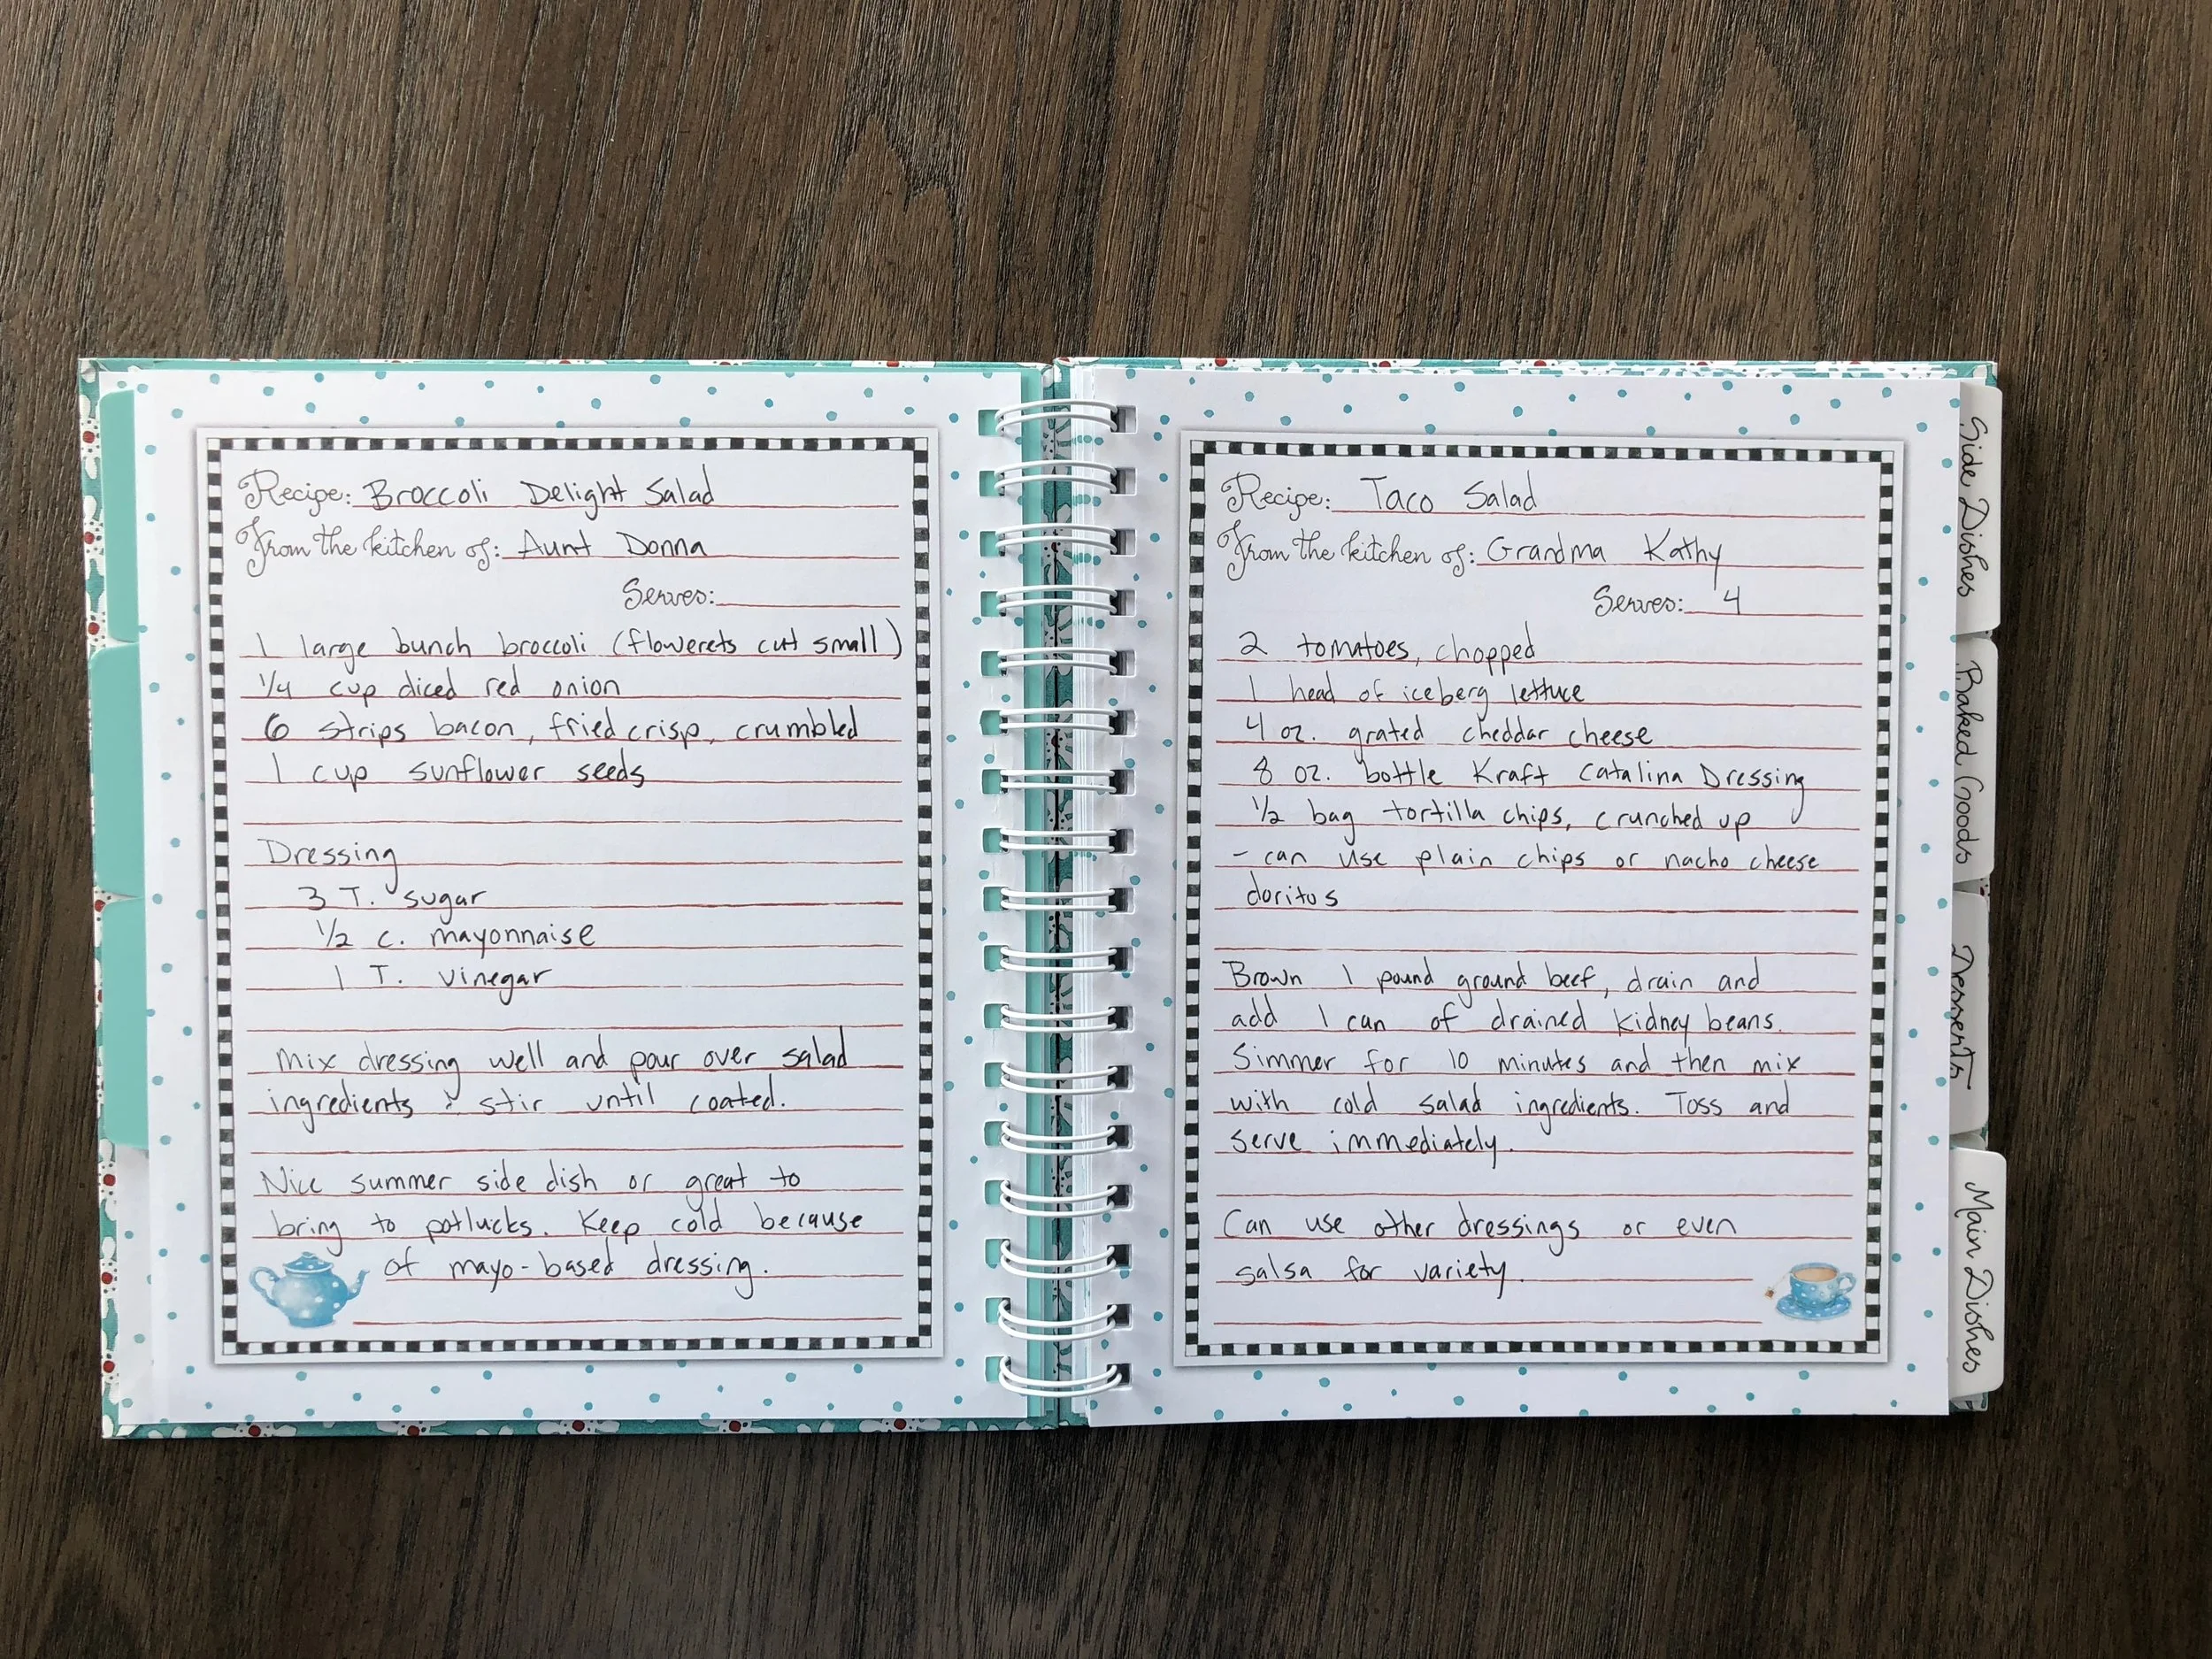 Recipe: Broccoli Delight Salad
From the kitchen of: Aunt Donna
Serves:
1 large bunch broccoli (flowerets cut small)
1/4 cup diced red onion
6 strips bacon, fried crisp, crumbled
1 cup sunflower seeds
Dressing
3 T. sugar
1/2 c. mayonnaise
1 T. vinegar
Mix dressing well and pour over salad
ingredients & stir until coated.
Nice summer side dish or great to
bring to potlucks. Keep cold because
of mayo-based dressing.
Recipe: Taco Salad
From the kitchen of: Grandma Kathy
Serves: 4
2 tomatoes, chopped
1 head of iceberg lettuce
4 oz. grated cheddar cheese
8 oz. bottle Kraft Catalina Dressing
1/2 bag tortilla chips, crunched up
- can use plain chips or nacho cheese
doritos
Brown 1 pound ground beef, drain and
add 1 can of drained kidney beans.
Simmer for 10 minutes and then mix
with cold salad ingredients. Toss and
serve immediately.
Can use other dressings or even
salsa for variety.
Side Dishes
Baked Goods
Desserts
Main Dishes